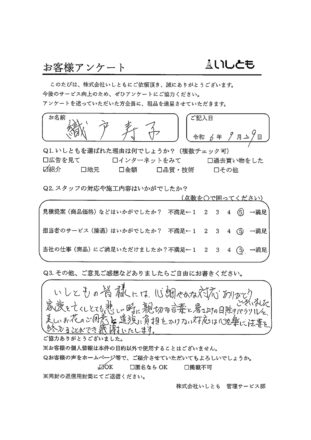 お客様アンケート
いしとも
このたびは、株式会社いしともにご依頼頂き、誠にありがとうございます。
今後のサービス向上のため、ぜひアンケートにご協力ください。
アンケートを送っていただいた方全員に、粗品を進呈させていただきます。
お名前
織戸寿子
ご記入日
令和 6年 9月29日
Q1. いしともを選ばれた理由は何でしょうか?(複数チェック可)
□広告を見て □インターネットをみて □過去買い物をした
☑紹介 □地元 □金額 □品質・技術 □その他
Q2. スタッフの対応や施工内容はいかがでしたか?
(点数を○で囲ってください)
見積提案(商品価格)などはいかがでしたか? 不満足← 1 2 3 4 ⑤ →満足
担当者のサービス(接遇)はいかがでしたか? 不満足← 1 2 3 4 ⑤ →満足
当社の仕事(商品)にご満足いただけましたか? 不満足← 1 2 3 4 ⑤ →満足
Q3. その他、ご意見ご感想などありましたらご自由にお書きください。
いしともの皆様には、心穏やかな対応ありがとうございました
家族を亡くしとても悲しい時に親切な言葉と
美しいお花のご用意と遺族に負担をかけない対応は
終ることができ感謝いたします。
ご協力ありがとうございました。
※お客様の個人情報は本件の目的以外で使用することはございません。
Qお客様の声をホームページ等で、ご紹介させていただいてもよろしいでしょうか。
☑OK □匿名なら OK □掲載不可
※同封の返信用封筒にてご送信ください。
株式会社いしとも 管理サービス部